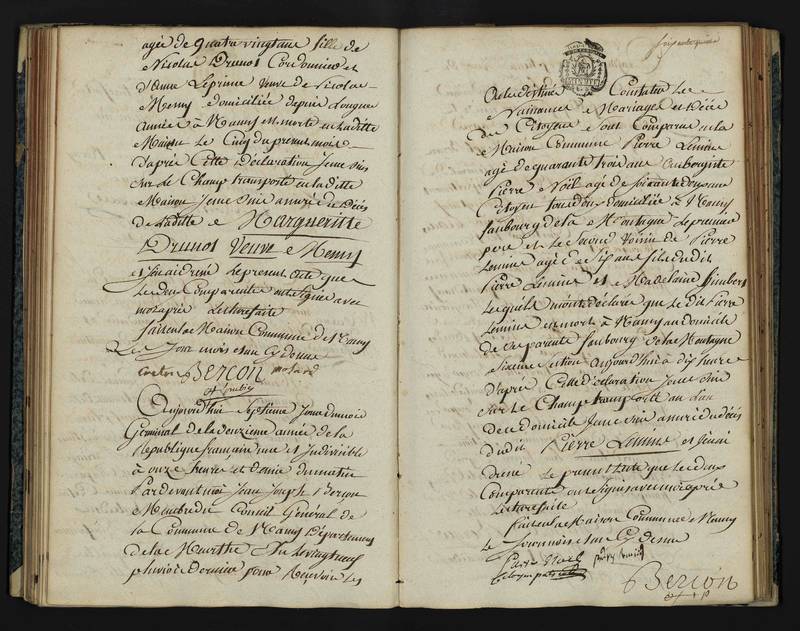 agée de quatre vingt ans fille de
Nicolas Drunot Cordonnier et
d'anne Leprince veuve de Nicolas
Memy domiciliée depuis longues
années à Nancy est morte en la ditte
Maison le Cinq du present mois
d'après Cette déclaration je me suis
sur le Champ transporté en la ditte
Maison je me suis assuré du décès
de laditte Margueritte
Drunot Veuve Memy
et j'en ai dressé le present acte que
les deux Comparants ont signé avec
moi après lecture faite
fait en la Maison Commune de Nancy
Les jour mois et an Cy dessus
Bercon
Aujourd'hui Septième jour du mois
Germinal de la deuxième année de la
République française une et indivisible
à onze heures et demie du matin
Pardevant moi Jean Joseph Bercon
Membre du Conseil Général de
la Commune de Nancy Département
de la Meurthe élu le vingt neuf
pluviose dernier pour recevoir les
actes destinés à Constater les
Naissances Mariages et Décès
des Citoyens Sont Comparus en la
Maison Commune Pierre Lemine
agé de quarante trois ans aubergiste
Pierre Noël agé de soixante douze ans
Citoyen tous deux domiciliés à Nancy
faubourg de la Montagne le premier
pere et le second voisin de Pierre
Lemine agé de six ans fils dudit
Pierre Lemine et Madelaine
Lesquels m'ont déclaré que le dit Pierre
Lemine est mort à Nancy au domicile
de ses parents faubourg de la Montagne
Sixieme Section aujourd'hui à dix heures
d'après Cette déclaration je me suis
sur le Champ transporté au lieu
de ce domicile je me suis assuré du décès
dudit Pierre Lemine et j'en ai
dressé le present acte que les deux
Comparants ont signé avec moi après
lecture faite
fait en la Maison Commune Nancy
les jour mois et an Cy dessus
Pierre Noel
Bercon